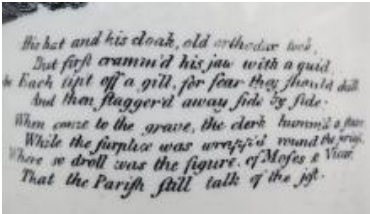 His hat and his cloak, old orthodox took,
But first cramm'd his jaw with a quid,
Each tipt off a gill, for fear they should chill
And then stagger'd away side by side.
When come to the grave, the clerk humm'd a stave
While the surplice was wrapp'd round the priest,
Where so droll was the figure, of Moses & Vicar,
That the Parish still talk of the jest.